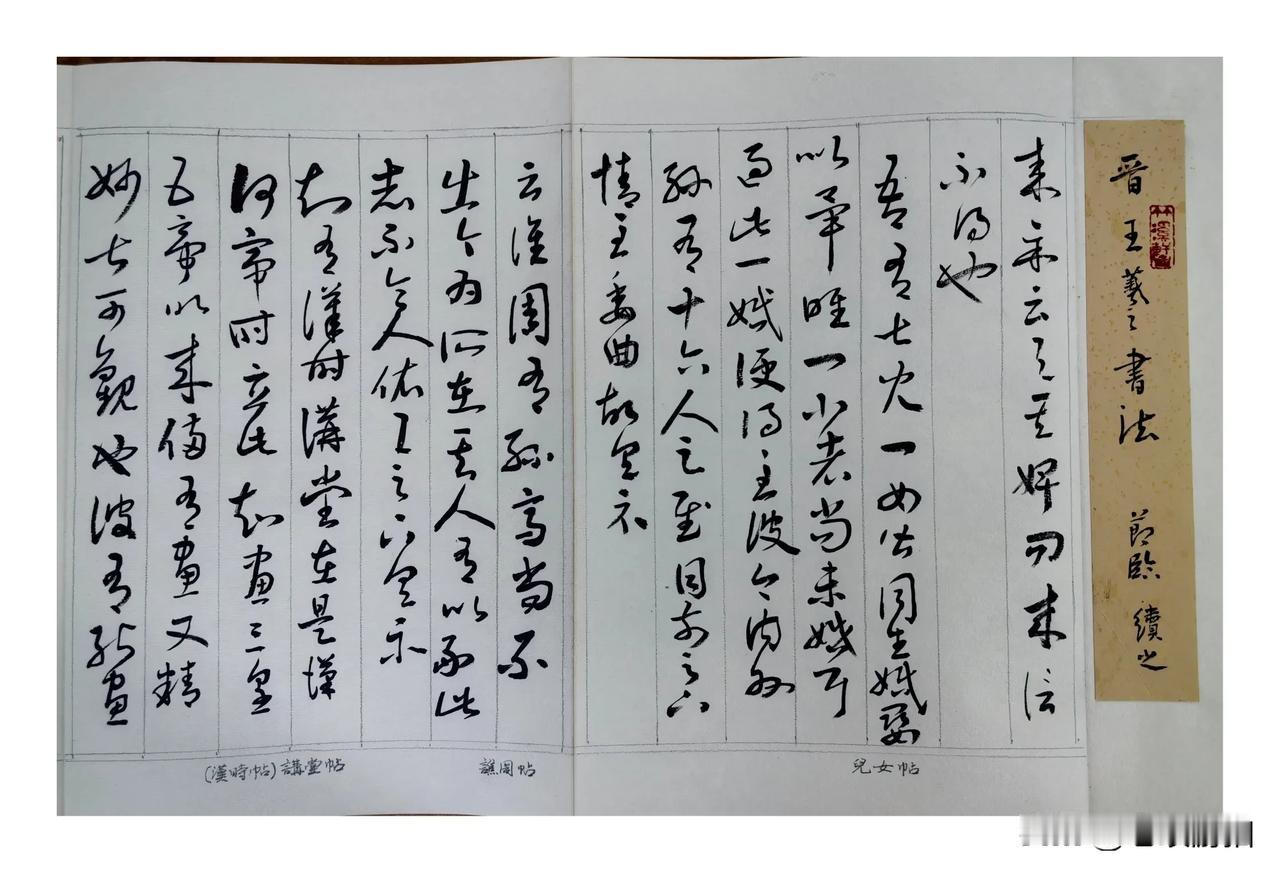 晋 王羲之書法 節臨 續之
来示云与其婢問来信
不得也
吾有七兒一女皆同生婚娶
以畢唯一小者尚未婚耳
過此一婚便得至彼今内外
孫有十六人足慰目前足下
情至委曲故具示
云譙周有孫高尚不
出今為所在其人有以副此
志不令人依依足下具示
知有漢時講堂在是漢
何帝時立此知畫三皇
五帝以来備有畫又精
妙甚可觀也彼有能畫
兒女帖
譙周帖
(漢時帖)講堂帖